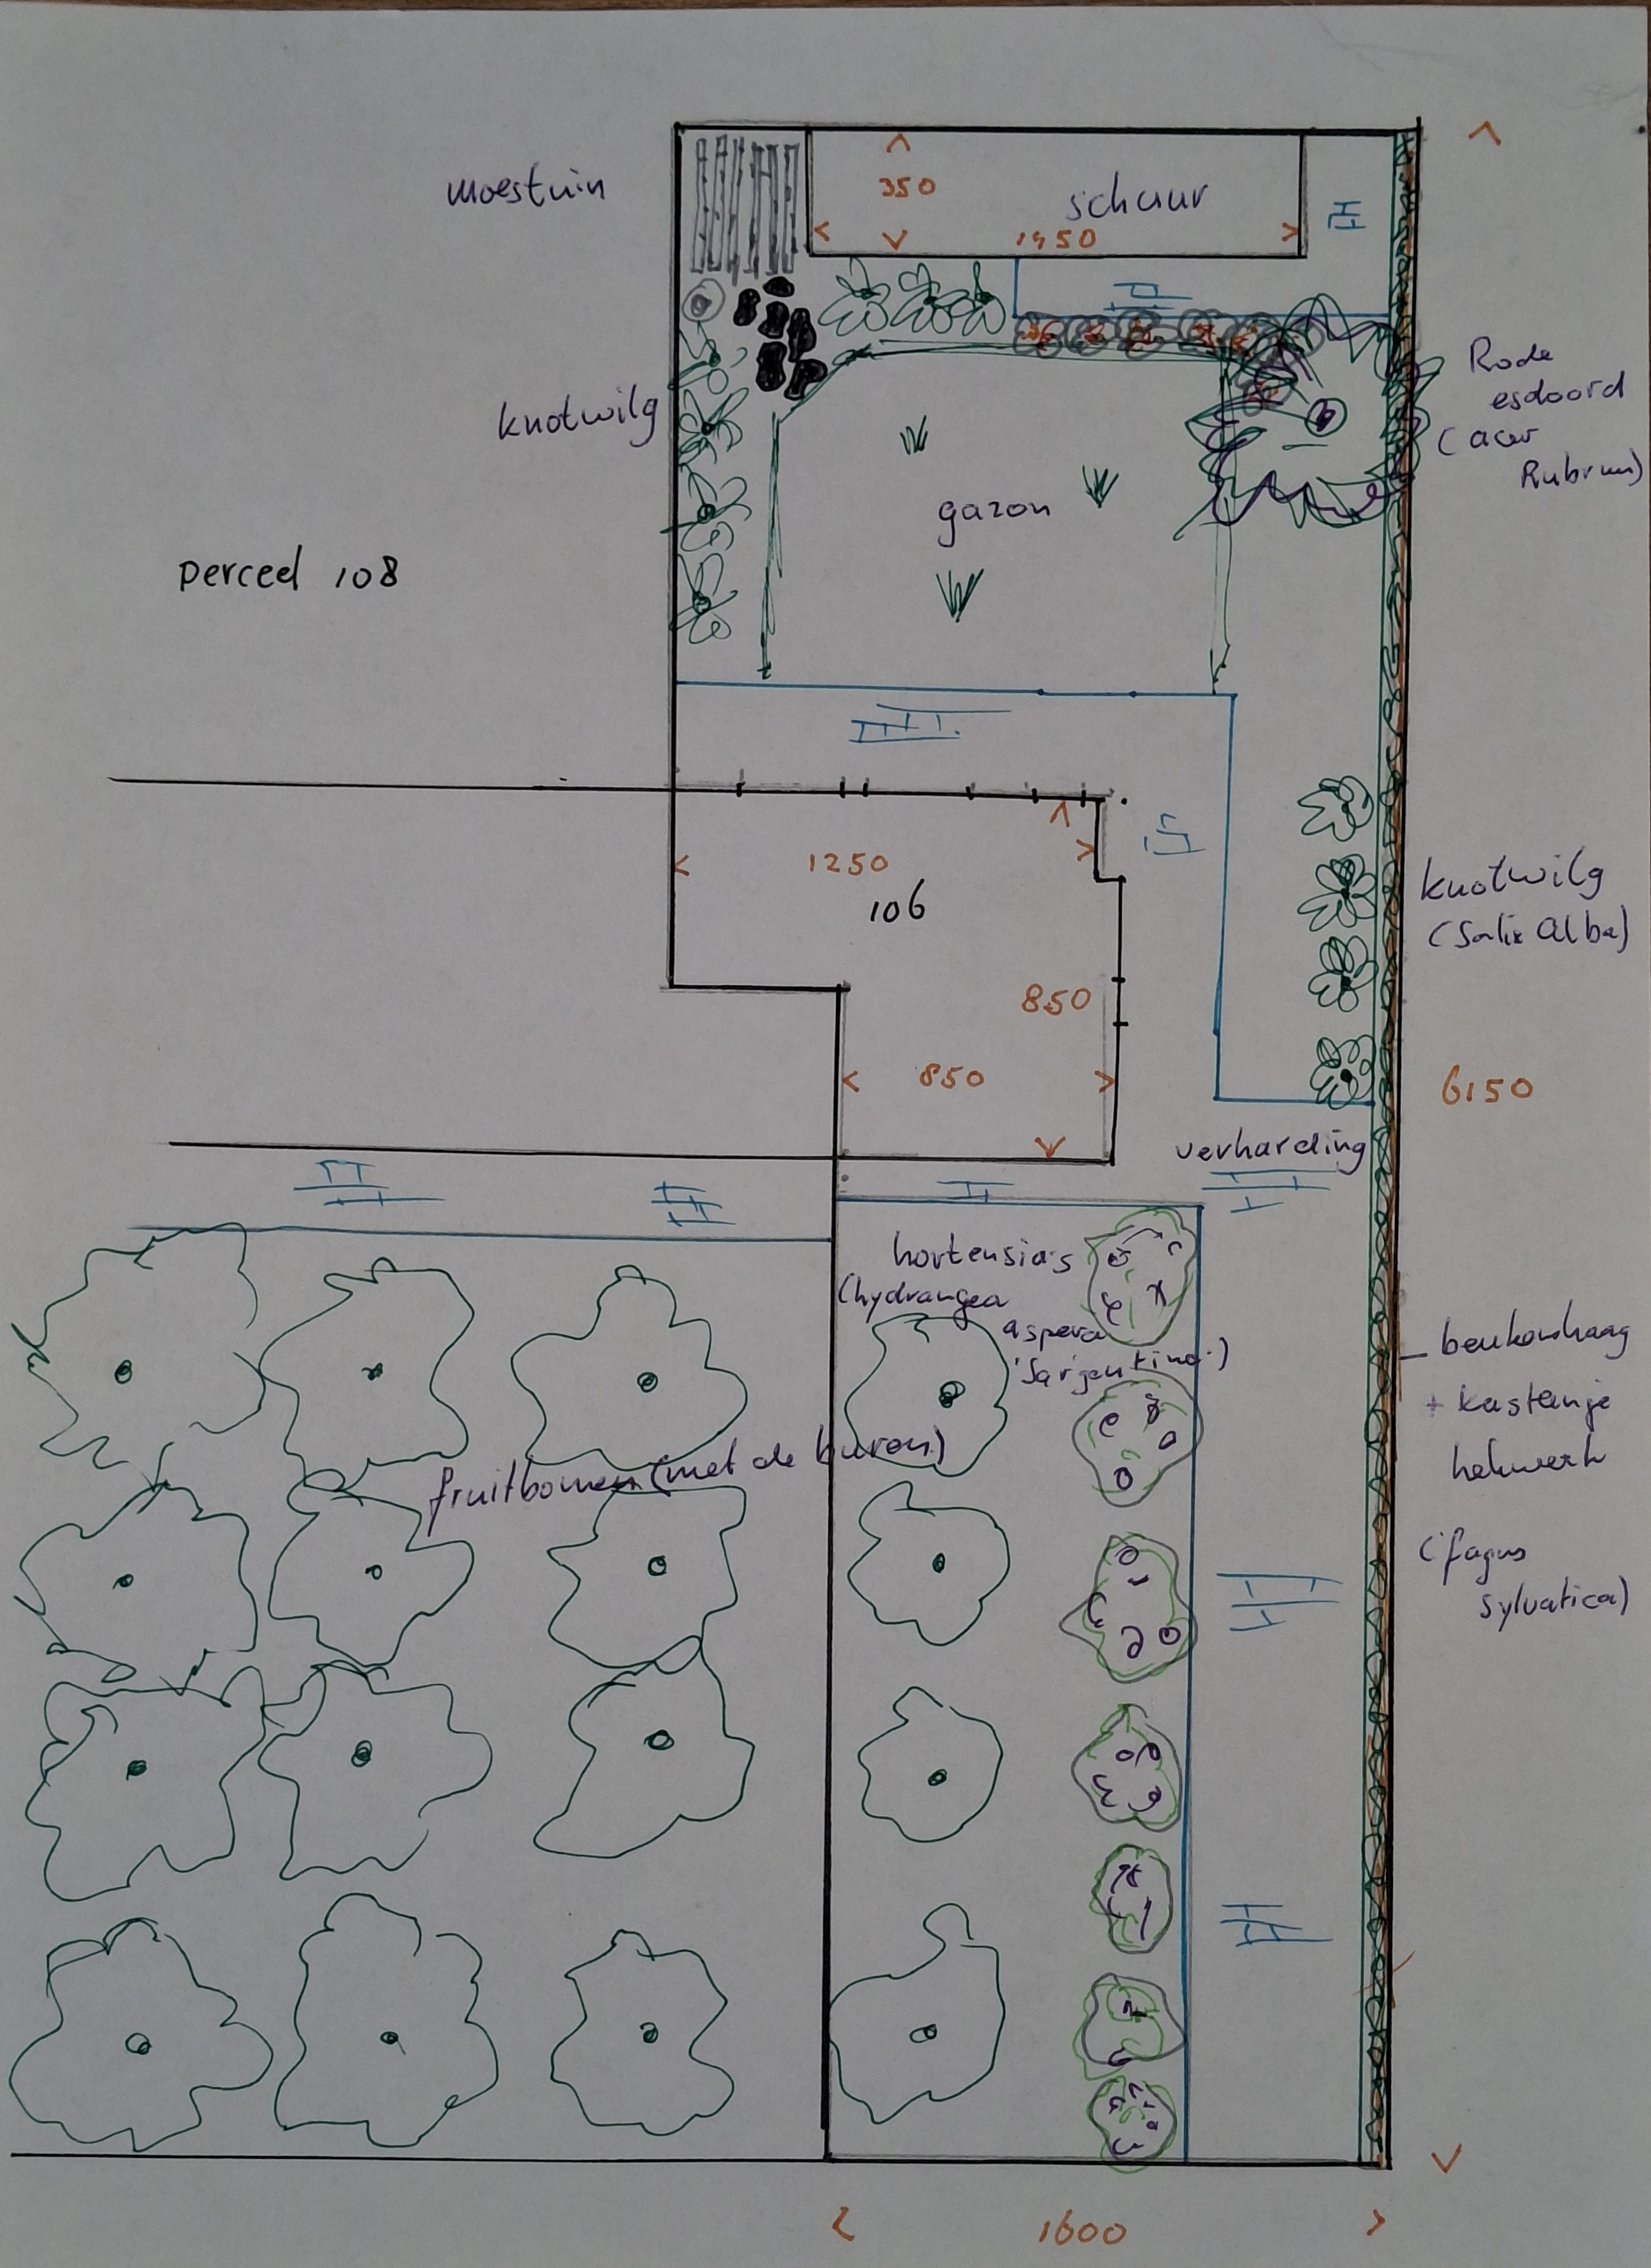 moestuin
350
schuur
1450
Rode
esdoord
(acer
Rubrum)
knotwilg
gazon
perceel 108
1250
106
knotwilg
(Salix Alba)
850
850
6150
verharding
hortensia's
(hydrangea
aspera
'Sargentina')
beukenhaag
+ kastanje
hekwerk
fruitbomen (met de buren)
(fagus
sylvatica)
1600